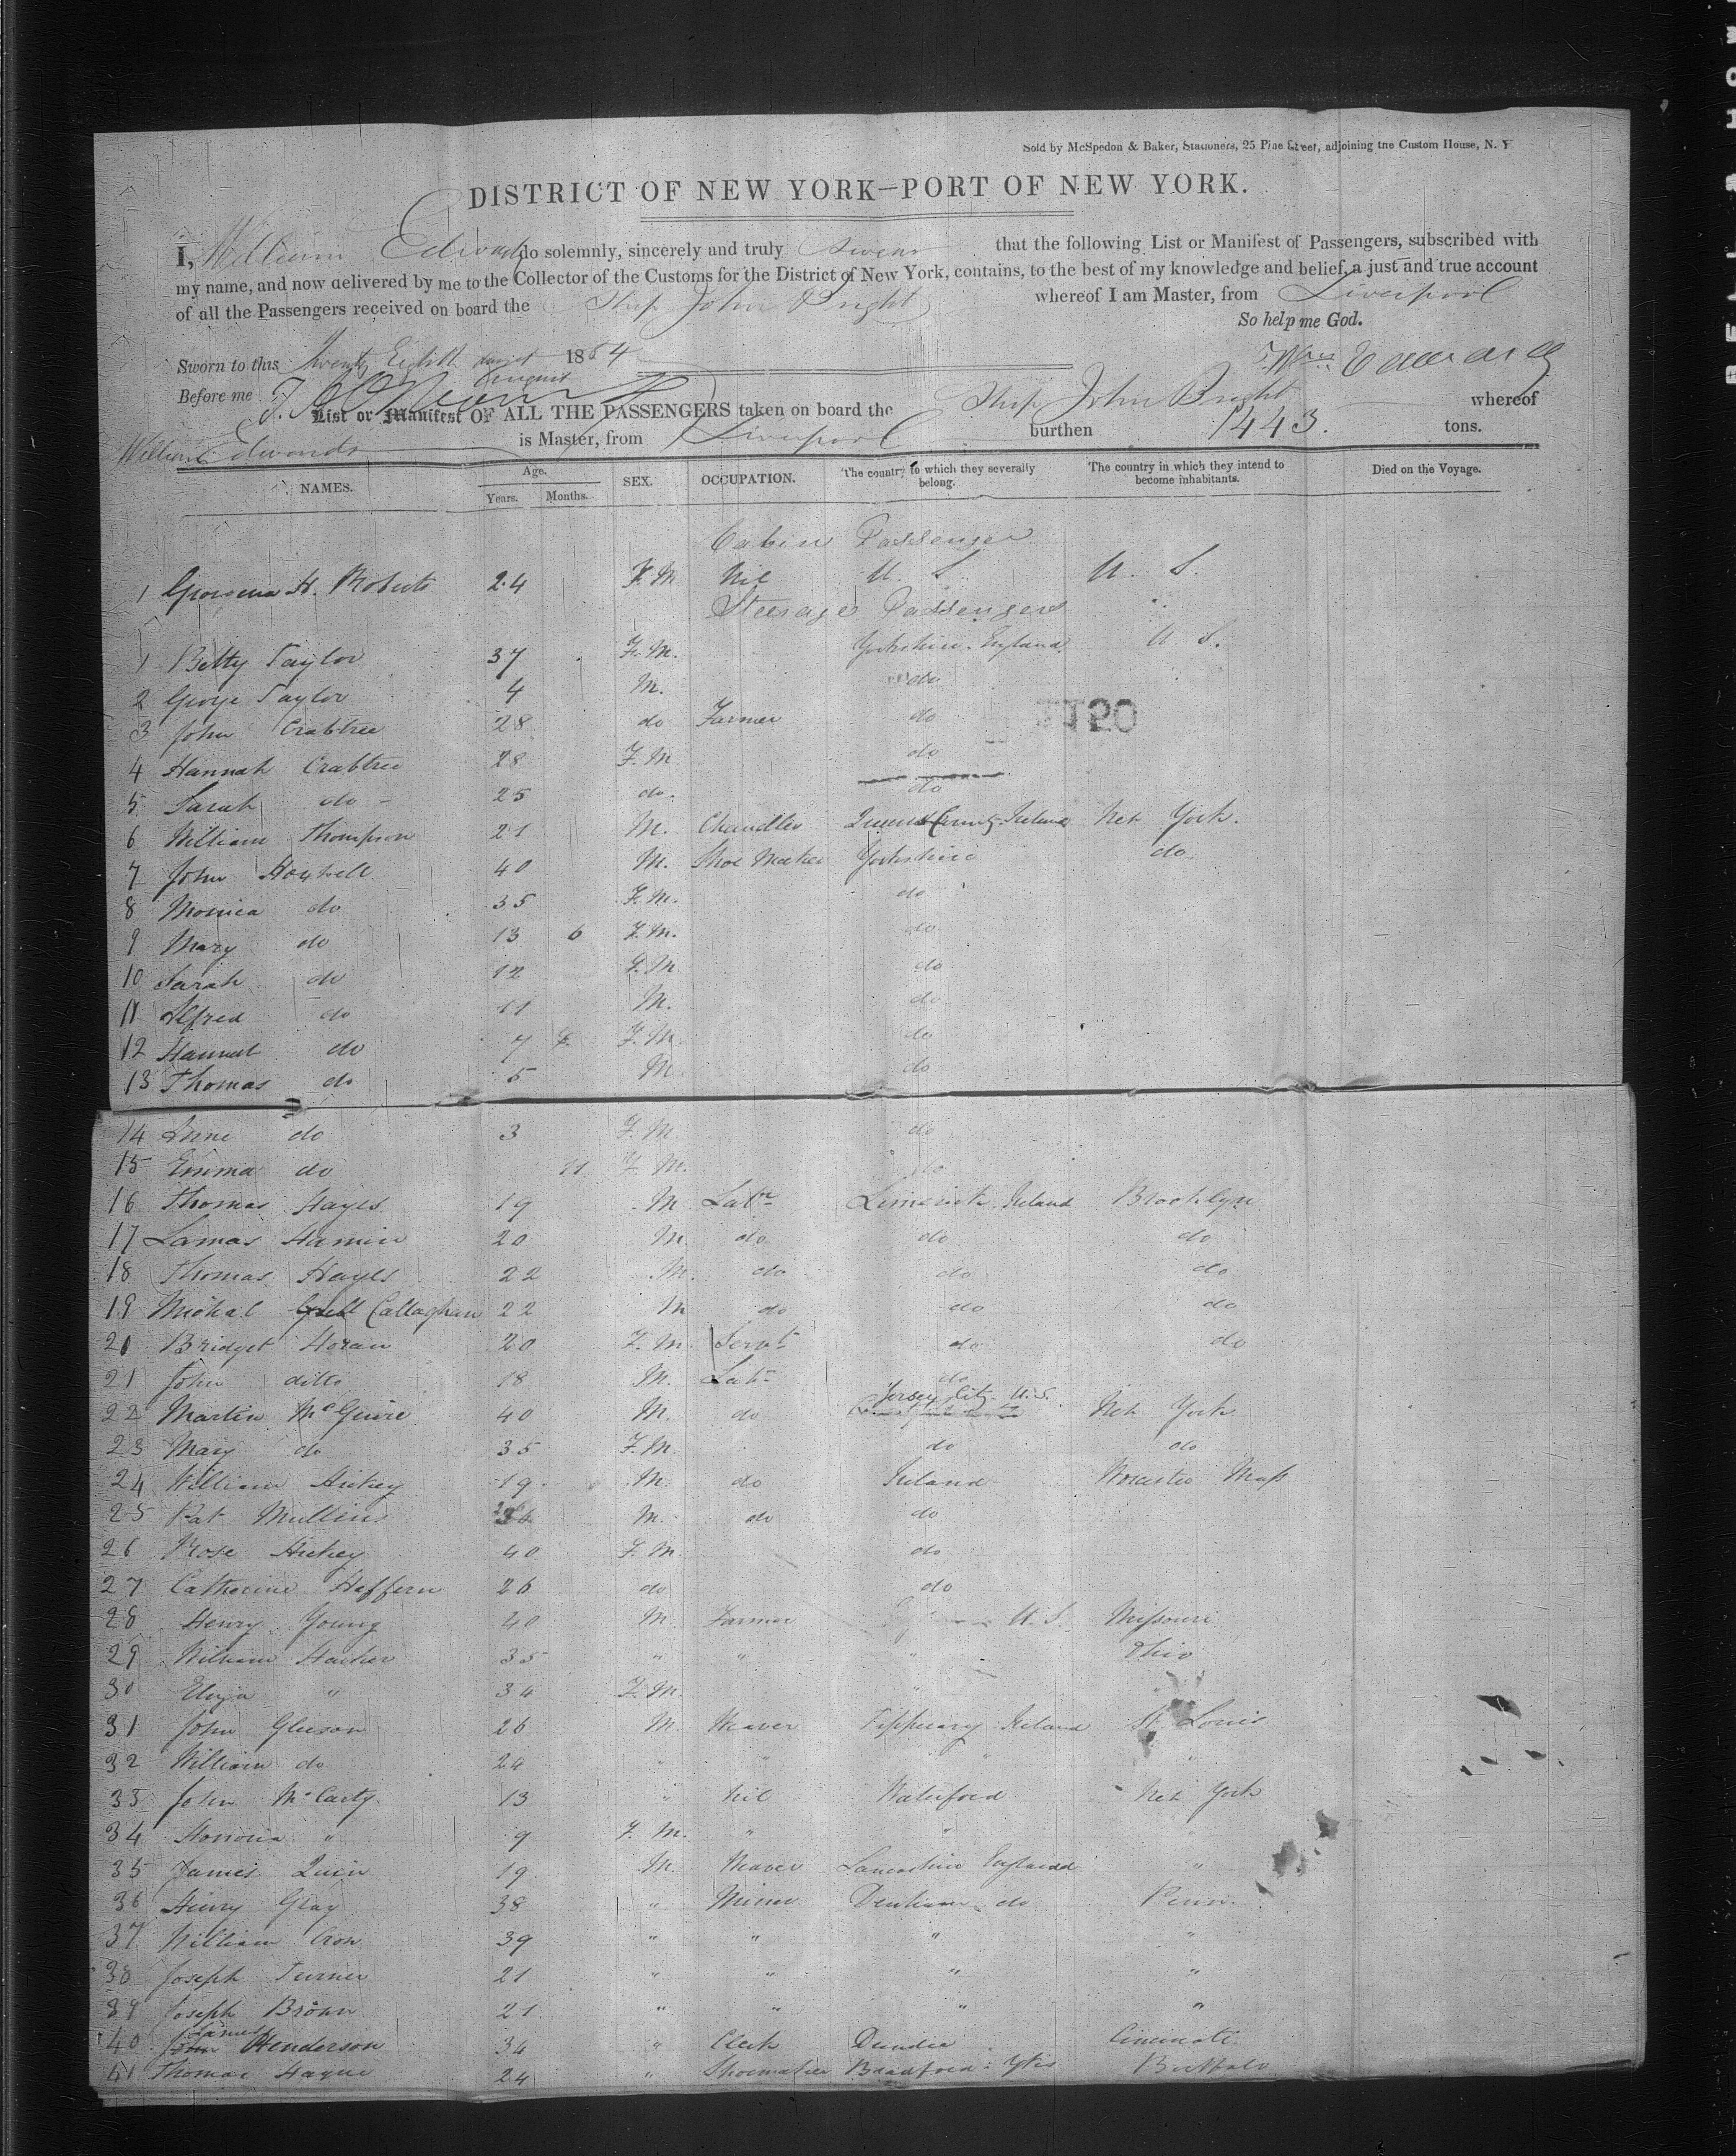 Sold by McSpedon & Baker, Stationers, 25 Pine Street, adjoining the Custom House, N. Y
DISTRICT OF NEW YORK—PORT OF NEW YORK.
I, William Edwards do solemnly, sincerely and truly swear that the following List or Manifest of Passengers, subscribed with
my name, and now delivered by me to the Collector of the Customs for the District of New York, contains, to the best of my knowledge and belief, a just and true account
of all the Passengers received on board the Ship John Bright whereof I am Master, from Liverpool
So help me God.
Sworn to this Twenty Eighth day of August 1854
Wm Edwards
Before me
List or Manifest OF ALL THE PASSENGERS taken on board the Ship John Bright whereof
William Edwards is Master, from Liverpool burthen 1443. tons.
NAMES. Age. Years. Months. SEX. OCCUPATION. The country to which they severally belong. The country in which they intend to become inhabitants. Died on the Voyage.
Cabin Passenger
1 Georgena H. Roberts 24 F.M Nil U. S. U. S.
Steerage Passengers
1 Betty Taylor 37 F.M. Yorkshire. England. U. S.
2 George Taylor 4 M. do
3 John Crabtree 28 do Farmer do
1150
4 Hannah Crabtree 28 F.M do
5 Sarah do 25 do. do
6 William Thompson 21 M. Chandler Queens County Ireland New York.
7 John Howell 40 M. Shoe Maker Yorkshire do
8 Monica do 35 F.M. do
9 Mary do 13 6 F.M. do
10 Sarah do 12 F.M do
11 Alfred do 11 M. do
12 Hannah do 7 F.M. do
13 Thomas do 5 M. do
14 do 3 F.M. do
15 Emma do 11 F.M. do
16 Thomas Hayes 19 M Labr Limerick. Ireland Brooklyn
17 Lamas 20 M do do do
18 Thomas Hayes 22 M. do do do
19 Michal Callaghan 22 M do do do
20 Bridget Horan 20 F.M. Servt do do
21 John ditto 18 M. Labr do
22 Martin McGuire 40 M. do Jersey City U.S. New York
23 Mary do 35 F.M. do do
24 William Hickey 19 M. do Ireland Worcester Mass
25 Pat Mullins M. do do
26 Rose Hickey 40 F.M. do
27 Catherine Heffern 26 do do
28 Henry Young 40 M. Farmer U.S. Missouri
29 William 35 " " " Ohio
30 Eliza " 34 F.M. "
31 John Gleeson 26 M. Weaver Tipperary Ireland St Louis
32 William do 24 " " " "
33 John McCarty 13 " Nil Waterford New York
34 Honoria " 9 F.M. " "
35 James Quin 19 M. Weaver Lancashire England "
36 Henry Gray 38 " Miner Denham do Penn.
37 William Crow 39 " " " "
38 Joseph Turner 21 " " " "
39 Joseph Brown 21 " " " "
40 James Henderson 34 " Clerk Dundee Cincinati.
41 Thomas Hague 24 " Shoemaker Bradford Yks Buffalo